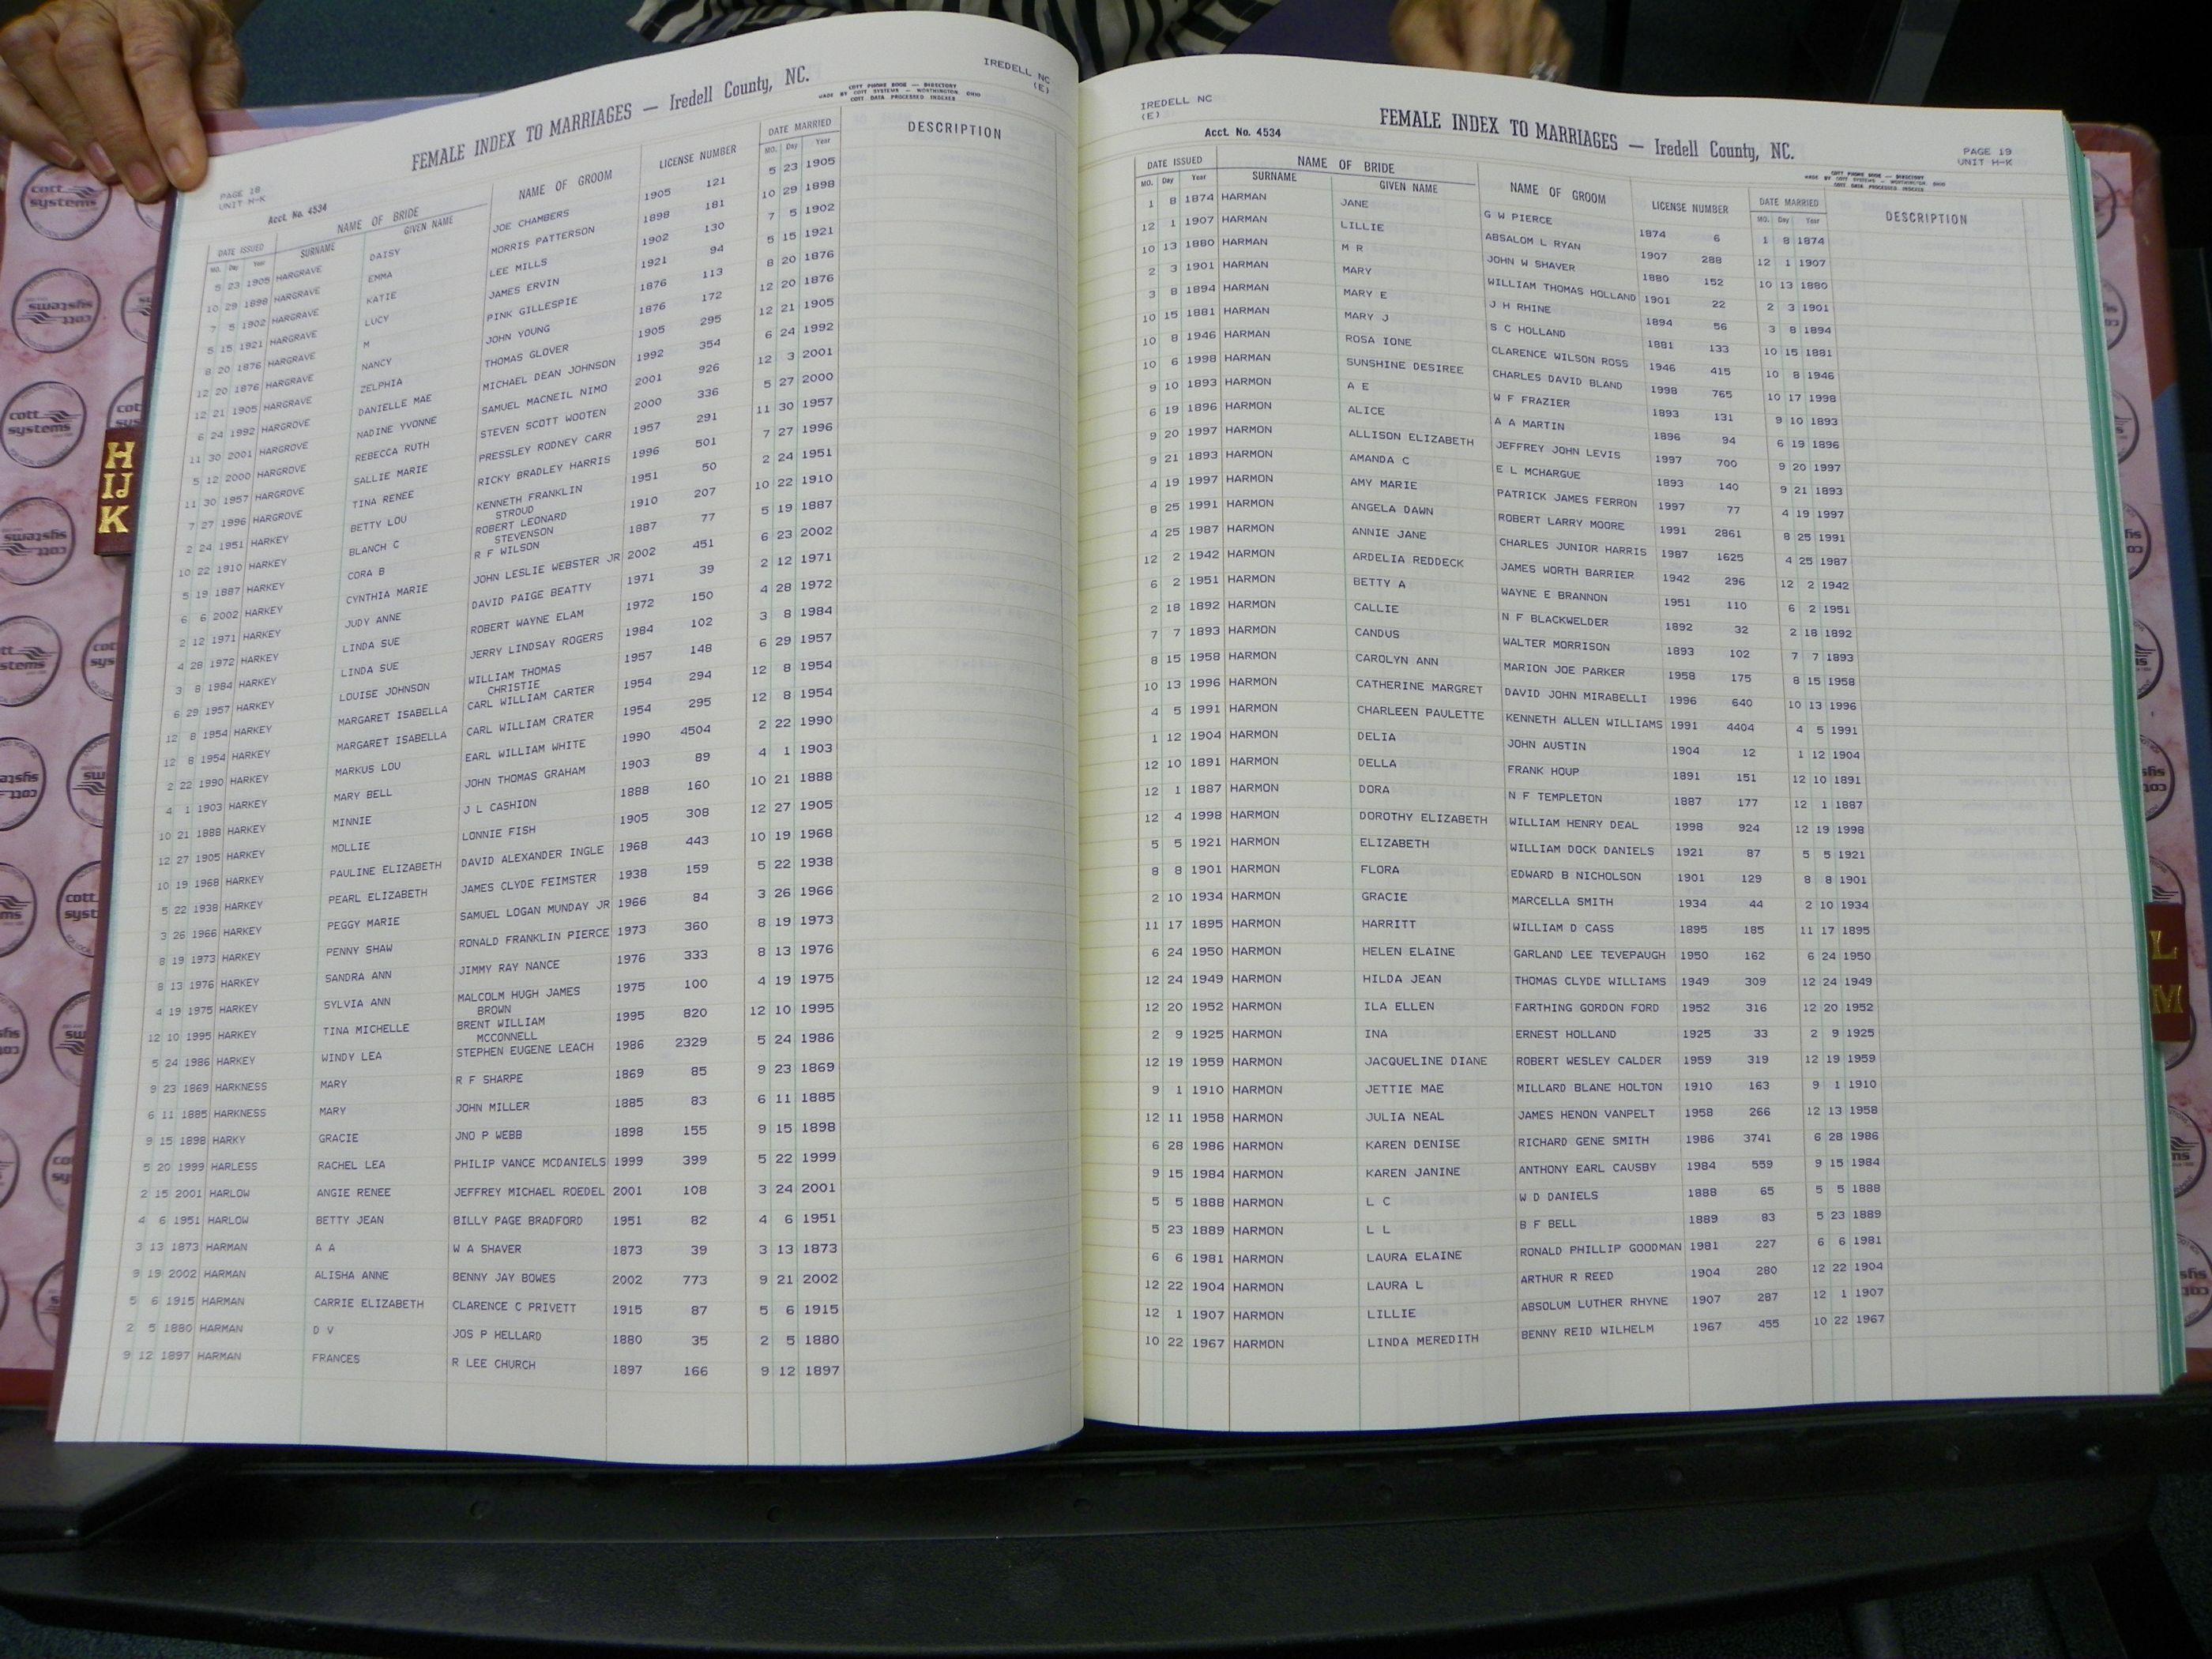 FEMALE INDEX TO MARRIAGES — Iredell County, NC.
IREDELL NC
(E)
COTT PHONE BOOK — DIRECTORY
MADE BY COTT SYSTEMS — WORTHINGTON, OHIO
COTT DATA PROCESSED INDEXES
PAGE 18
UNIT H-K
Acct. No. 4534
DATE ISSUED NAME OF BRIDE NAME OF GROOM LICENSE NUMBER DATE MARRIED DESCRIPTION
MO. Day Year SURNAME GIVEN NAME MO. Day Year
5 23 1905 HARGRAVE DAISY JOE CHAMBERS 1905 121 5 23 1905
10 29 1898 HARGRAVE EMMA MORRIS PATTERSON 1898 181 10 29 1898
7 5 1902 HARGRAVE KATIE LEE MILLS 1902 130 7 5 1902
5 15 1921 HARGRAVE LUCY JAMES ERVIN 1921 94 5 15 1921
8 20 1876 HARGRAVE M PINK GILLESPIE 1876 113 8 20 1876
12 20 1876 HARGRAVE NANCY JOHN YOUNG 1876 172 12 20 1876
12 21 1905 HARGRAVE ZELPHIA THOMAS GLOVER 1905 295 12 21 1905
6 24 1992 HARGROVE DANIELLE MAE MICHAEL DEAN JOHNSON 1992 354 6 24 1992
11 30 2001 HARGROVE NADINE YVONNE SAMUEL MACNEIL NIMO 2001 926 12 3 2001
5 12 2000 HARGROVE REBECCA RUTH STEVEN SCOTT WOOTEN 2000 336 5 27 2000
11 30 1957 HARGROVE SALLIE MARIE PRESSLEY RODNEY CARR 1957 291 11 30 1957
7 27 1996 HARGROVE TINA RENEE RICKY BRADLEY HARRIS 1996 501 7 27 1996
2 24 1951 HARKEY BETTY LOU KENNETH FRANKLIN 1951 50 2 24 1951
STROUD
10 22 1910 HARKEY BLANCH C ROBERT LEONARD 1910 207 10 22 1910
STEVENSON
5 19 1887 HARKEY CORA B R F WILSON 1887 77 5 19 1887
6 6 2002 HARKEY CYNTHIA MARIE JOHN LESLIE WEBSTER JR 2002 451 6 23 2002
2 12 1971 HARKEY JUDY ANNE DAVID PAIGE BEATTY 1971 39 2 12 1971
4 28 1972 HARKEY LINDA SUE ROBERT WAYNE ELAM 1972 150 4 28 1972
3 8 1984 HARKEY LINDA SUE JERRY LINDSAY ROGERS 1984 102 3 8 1984
6 29 1957 HARKEY LOUISE JOHNSON WILLIAM THOMAS 1957 148 6 29 1957
CHRISTIE
12 8 1954 HARKEY MARGARET ISABELLA CARL WILLIAM CARTER 1954 294 12 8 1954
12 8 1954 HARKEY MARGARET ISABELLA CARL WILLIAM CRATER 1954 295 12 8 1954
2 22 1990 HARKEY MARKUS LOU EARL WILLIAM WHITE 1990 4504 2 22 1990
4 1 1903 HARKEY MARY BELL JOHN THOMAS GRAHAM 1903 89 4 1 1903
10 21 1888 HARKEY MINNIE J L CASHION 1888 160 10 21 1888
12 27 1905 HARKEY MOLLIE LONNIE FISH 1905 308 12 27 1905
10 19 1968 HARKEY PAULINE ELIZABETH DAVID ALEXANDER INGLE 1968 443 10 19 1968
5 22 1938 HARKEY PEARL ELIZABETH JAMES CLYDE FEIMSTER 1938 159 5 22 1938
3 26 1966 HARKEY PEGGY MARIE SAMUEL LOGAN MUNDAY JR 1966 84 3 26 1966
8 19 1973 HARKEY PENNY SHAW RONALD FRANKLIN PIERCE 1973 360 8 19 1973
8 13 1976 HARKEY SANDRA ANN JIMMY RAY NANCE 1976 333 8 13 1976
4 19 1975 HARKEY SYLVIA ANN MALCOLM HUGH JAMES 1975 100 4 19 1975
BROWN
12 10 1995 HARKEY TINA MICHELLE BRENT WILLIAM 1995 820 12 10 1995
MCCONNELL
5 24 1986 HARKEY WINDY LEA STEPHEN EUGENE LEACH 1986 2329 5 24 1986
9 23 1869 HARKNESS MARY R F SHARPE 1869 85 9 23 1869
6 11 1885 HARKNESS MARY JOHN MILLER 1885 83 6 11 1885
9 15 1898 HARKY GRACIE JNO P WEBB 1898 155 9 15 1898
5 20 1999 HARLESS RACHEL LEA PHILIP VANCE MCDANIELS 1999 399 5 22 1999
2 15 2001 HARLOW ANGIE RENEE JEFFREY MICHAEL ROEDEL 2001 108 3 24 2001
4 6 1951 HARLOW BETTY JEAN BILLY PAGE BRADFORD 1951 82 4 6 1951
3 13 1873 HARMAN A A W A SHAVER 1873 39 3 13 1873
9 19 2002 HARMAN ALISHA ANNE BENNY JAY BOWES 2002 773 9 21 2002
5 6 1915 HARMAN CARRIE ELIZABETH CLARENCE C PRIVETT 1915 87 5 6 1915
2 5 1880 HARMAN D V JOS P HELLARD 1880 35 2 5 1880
9 12 1897 HARMAN FRANCES R LEE CHURCH 1897 166 9 12 1897
IREDELL NC
(E)
Acct. No. 4534
FEMALE INDEX TO MARRIAGES — Iredell County, NC.
PAGE 19
UNIT H-K
COTT PHONE BOOK — DIRECTORY
MADE BY COTT SYSTEMS — WORTHINGTON, OHIO
COTT DATA PROCESSED INDEXES
DATE ISSUED NAME OF BRIDE NAME OF GROOM LICENSE NUMBER DATE MARRIED DESCRIPTION
MO. Day Year SURNAME GIVEN NAME MO. Day Year
1 8 1874 HARMAN JANE G W PIERCE 1874 6 1 8 1874
12 1 1907 HARMAN LILLIE ABSALOM L RYAN 1907 288 12 1 1907
10 13 1880 HARMAN M R JOHN W SHAVER 1880 152 10 13 1880
2 3 1901 HARMAN MARY WILLIAM THOMAS HOLLAND 1901 22 2 3 1901
3 8 1894 HARMAN MARY E J H RHINE 1894 56 3 8 1894
10 15 1881 HARMAN MARY J S C HOLLAND 1881 133 10 15 1881
10 8 1946 HARMAN ROSA IONE CLARENCE WILSON ROSS 1946 415 10 8 1946
10 6 1998 HARMAN SUNSHINE DESIREE CHARLES DAVID BLAND 1998 765 10 17 1998
9 10 1893 HARMON A E W F FRAZIER 1893 131 9 10 1893
6 19 1896 HARMON ALICE A A MARTIN 1896 94 6 19 1896
9 20 1997 HARMON ALLISON ELIZABETH JEFFREY JOHN LEVIS 1997 700 9 20 1997
9 21 1893 HARMON AMANDA C E L MCHARGUE 1893 140 9 21 1893
4 19 1997 HARMON AMY MARIE PATRICK JAMES FERRON 1997 77 4 19 1997
8 25 1991 HARMON ANGELA DAWN ROBERT LARRY MOORE 1991 2861 8 25 1991
4 25 1987 HARMON ANNIE JANE CHARLES JUNIOR HARRIS 1987 1625 4 25 1987
12 2 1942 HARMON ARDELIA REDDECK JAMES WORTH BARRIER 1942 296 12 2 1942
6 2 1951 HARMON BETTY A WAYNE E BRANNON 1951 110 6 2 1951
2 18 1892 HARMON CALLIE N F BLACKWELDER 1892 32 2 18 1892
7 7 1893 HARMON CANDUS WALTER MORRISON 1893 102 7 7 1893
8 15 1958 HARMON CAROLYN ANN MARION JOE PARKER 1958 175 8 15 1958
10 13 1996 HARMON CATHERINE MARGRET DAVID JOHN MIRABELLI 1996 640 10 13 1996
4 5 1991 HARMON CHARLEEN PAULETTE KENNETH ALLEN WILLIAMS 1991 4404 4 5 1991
1 12 1904 HARMON DELIA JOHN AUSTIN 1904 12 1 12 1904
12 10 1891 HARMON DELLA FRANK HOUP 1891 151 12 10 1891
12 1 1887 HARMON DORA N F TEMPLETON 1887 177 12 1 1887
12 4 1998 HARMON DOROTHY ELIZABETH WILLIAM HENRY DEAL 1998 924 12 19 1998
5 5 1921 HARMON ELIZABETH WILLIAM DOCK DANIELS 1921 87 5 5 1921
8 8 1901 HARMON FLORA EDWARD B NICHOLSON 1901 129 8 8 1901
2 10 1934 HARMON GRACIE MARCELLA SMITH 1934 44 2 10 1934
11 17 1895 HARMON HARRITT WILLIAM D CASS 1895 185 11 17 1895
6 24 1950 HARMON HELEN ELAINE GARLAND LEE TEVEPAUGH 1950 162 6 24 1950
12 24 1949 HARMON HILDA JEAN THOMAS CLYDE WILLIAMS 1949 309 12 24 1949
12 20 1952 HARMON ILA ELLEN FARTHING GORDON FORD 1952 316 12 20 1952
2 9 1925 HARMON INA ERNEST HOLLAND 1925 33 2 9 1925
12 19 1959 HARMON JACQUELINE DIANE ROBERT WESLEY CALDER 1959 319 12 19 1959
9 1 1910 HARMON JETTIE MAE MILLARD BLANE HOLTON 1910 163 9 1 1910
12 11 1958 HARMON JULIA NEAL JAMES HENON VANPELT 1958 266 12 13 1958
6 28 1986 HARMON KAREN DENISE RICHARD GENE SMITH 1986 3741 6 28 1986
9 15 1984 HARMON KAREN JANINE ANTHONY EARL CAUSBY 1984 559 9 15 1984
5 5 1888 HARMON L C W D DANIELS 1888 65 5 5 1888
5 23 1889 HARMON L L B F BELL 1889 83 5 23 1889
6 6 1981 HARMON LAURA ELAINE RONALD PHILLIP GOODMAN 1981 227 6 6 1981
12 22 1904 HARMON LAURA L ARTHUR R REED 1904 280 12 22 1904
12 1 1907 HARMON LILLIE ABSOLUM LUTHER RHYNE 1907 287 12 1 1907
10 22 1967 HARMON LINDA MEREDITH BENNY REID WILHELM 1967 455 10 22 1967
H
IJ
K
L
M
cott
systems
cott
systems